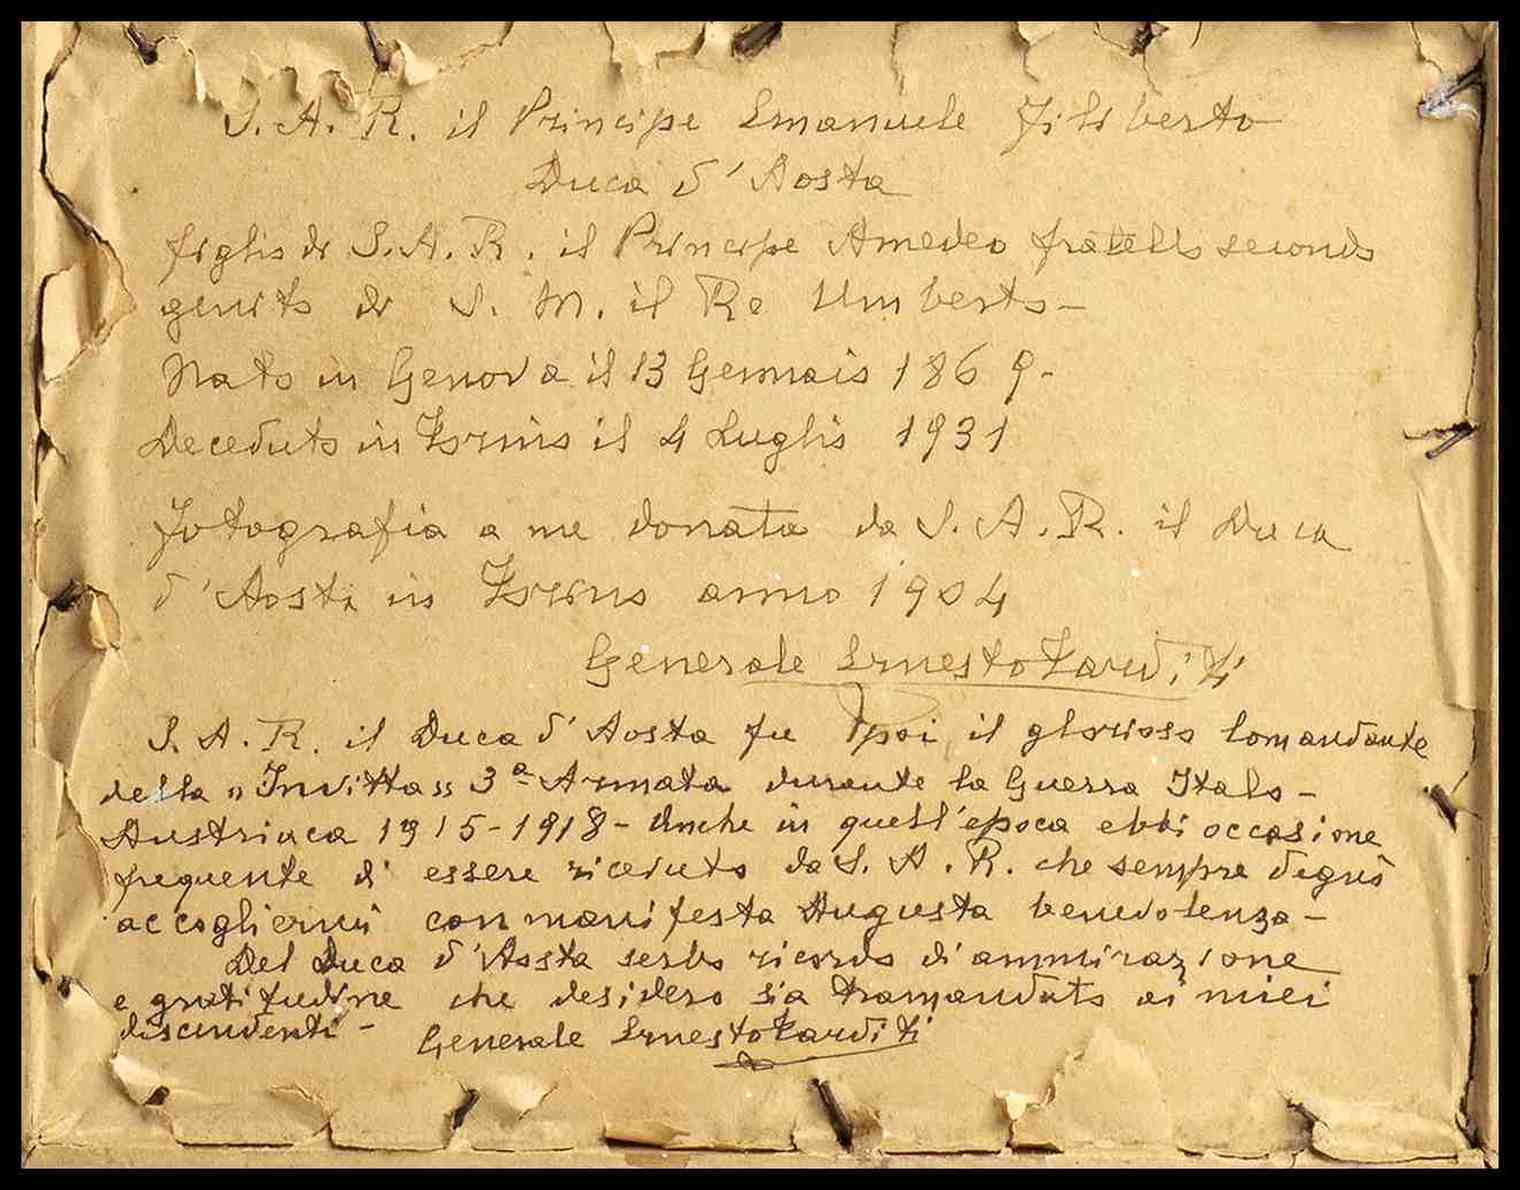 S. A. R. il Principe Emanuele Filiberto
Duca d'Aosta
figlio di S. A. R. il Principe Amedeo fratello secondo
genito di S. M. il Re Umberto -
Nato in Genova il 13 Gennaio 1869 -
Deceduto in Torino il 4 Luglio 1931
Fotografia a me donata da S. A. R. il Duca
d'Aosta in Torino anno 1904
Generale Ernesto Tarditi
S. A. R. il Duca d'Aosta fu poi il glorioso Comandante
della "Invitta" 3ª Armata durante la Guerra Italo -
Austriaca 1915 - 1918 - Anche in quell'epoca ebbi occasione
frequente di essere ricevuto da S. A. R. che sempre degnò
accogliermi con manifesta Augusta benevolenza -
Del Duca d'Aosta serbo ricordo di ammirazione
e gratitudine che desidero sia tramandato ai miei
discendenti - Generale Ernesto Tarditi